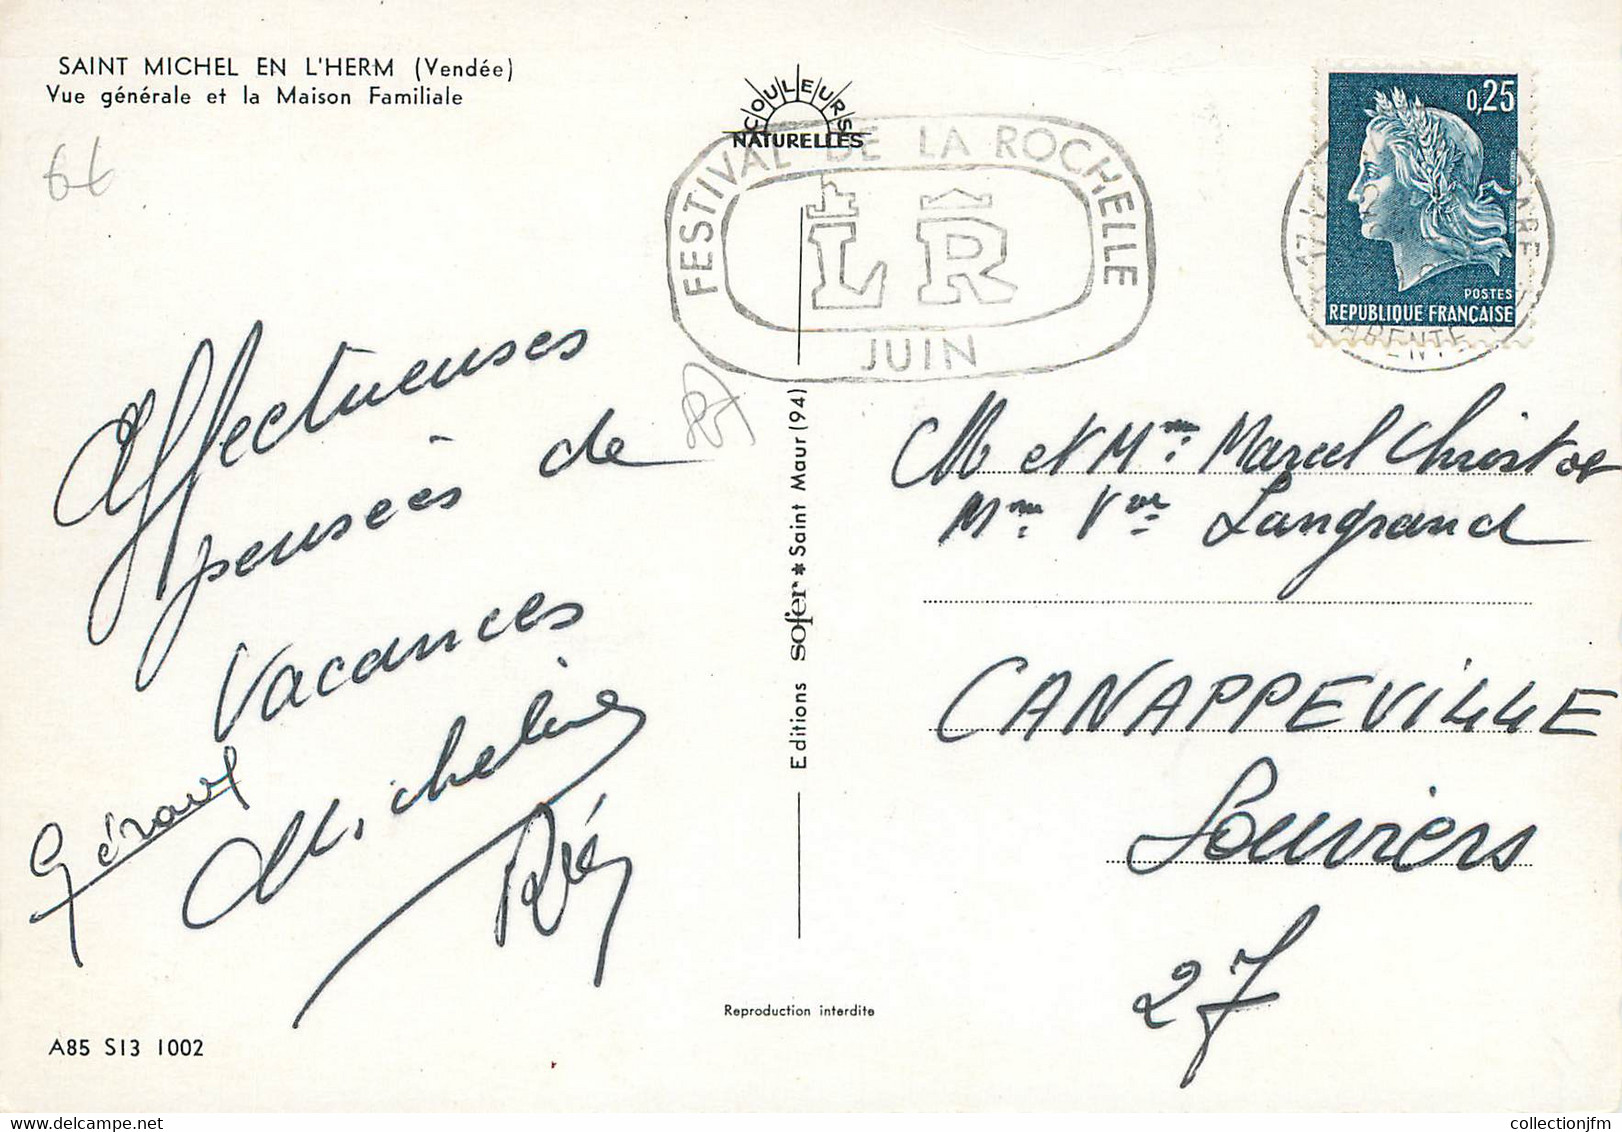 SAINT MICHEL EN L'HERM (Vendée)
Vue générale et la Maison Familiale
COULEURS
NATURELLES
FESTIVAL DE LA ROCHELLE
LR
JUIN
0,25
POSTES
REPUBLIQUE FRANÇAISE
17
GARE
85
Affectueuses
pensées de
Vacances
Micheline
Gérard
M et Mme Marcel
Mme Vve Langrand
CANAPPEVILLE
Louviers
27
Editions sofer * Saint Maur (94)
Reproduction interdite
A85 S13 1002
collectionjfm